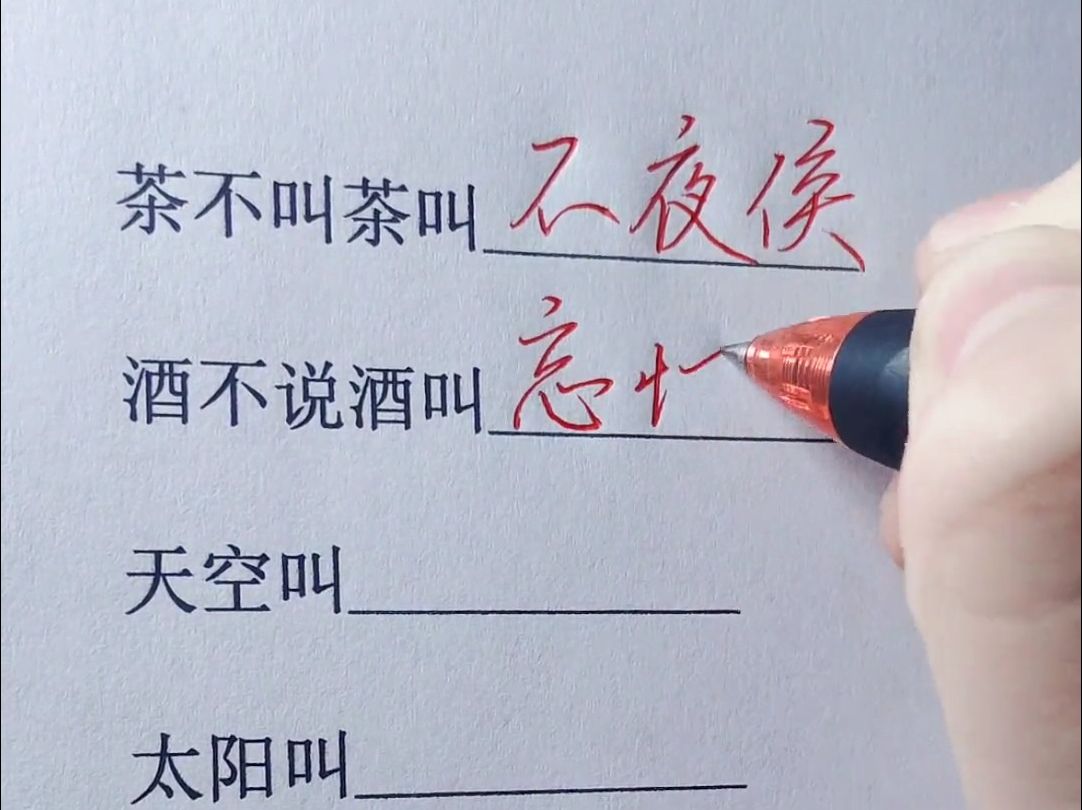 茶不叫茶叫不夜侯
酒不说酒叫忘
天空叫
太阳叫